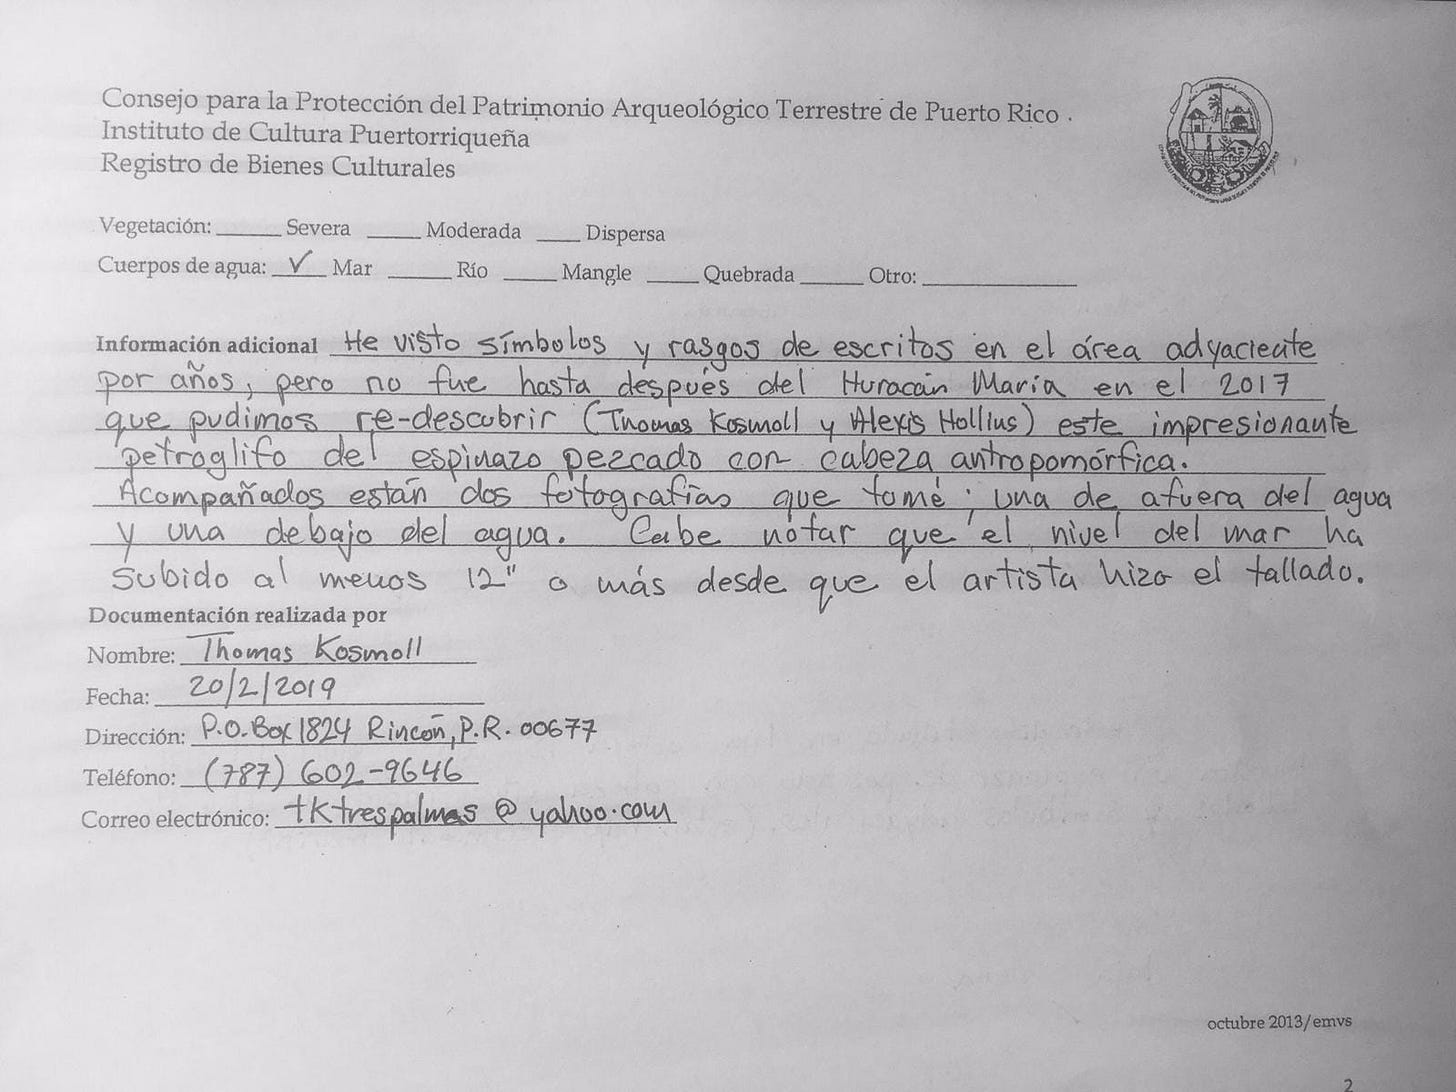 Consejo para la Protección del Patrimonio Arqueológico Terrestre de Puerto Rico
Instituto de Cultura Puertorriqueña
Registro de Bienes Culturales
Vegetación: ______ Severa _____ Moderada ____ Dispersa
Cuerpos de agua: __✓__ Mar ______ Río _____ Mangle _____ Quebrada ______ Otro: ______________
Información adicional He visto símbolos y rasgos de escritos en el área adyaciente
por años, pero no fue hasta después del Huracán María en el 2017
que pudimos re-descubrir (Thomas Kosmoll y Alexis Hollius) este impresionante
petroglifo del espinazo pezcado con cabeza antropomórfica.
Acompañados están dos fotografías que tomé; una de afuera del agua
y una debajo del agua. Cabe notar que el nivel del mar ha
subido al menos 12" o más desde que el artista hizo el tallado.
Documentación realizada por
Nombre: Thomas Kosmoll
Fecha: 20/2/2019
Dirección: P.O. Box 1824 Rincón, P.R. 00677
Teléfono: (787) 602-9646
Correo electrónico: tktrespalmas@yahoo.com
octubre 2013/emvs
2